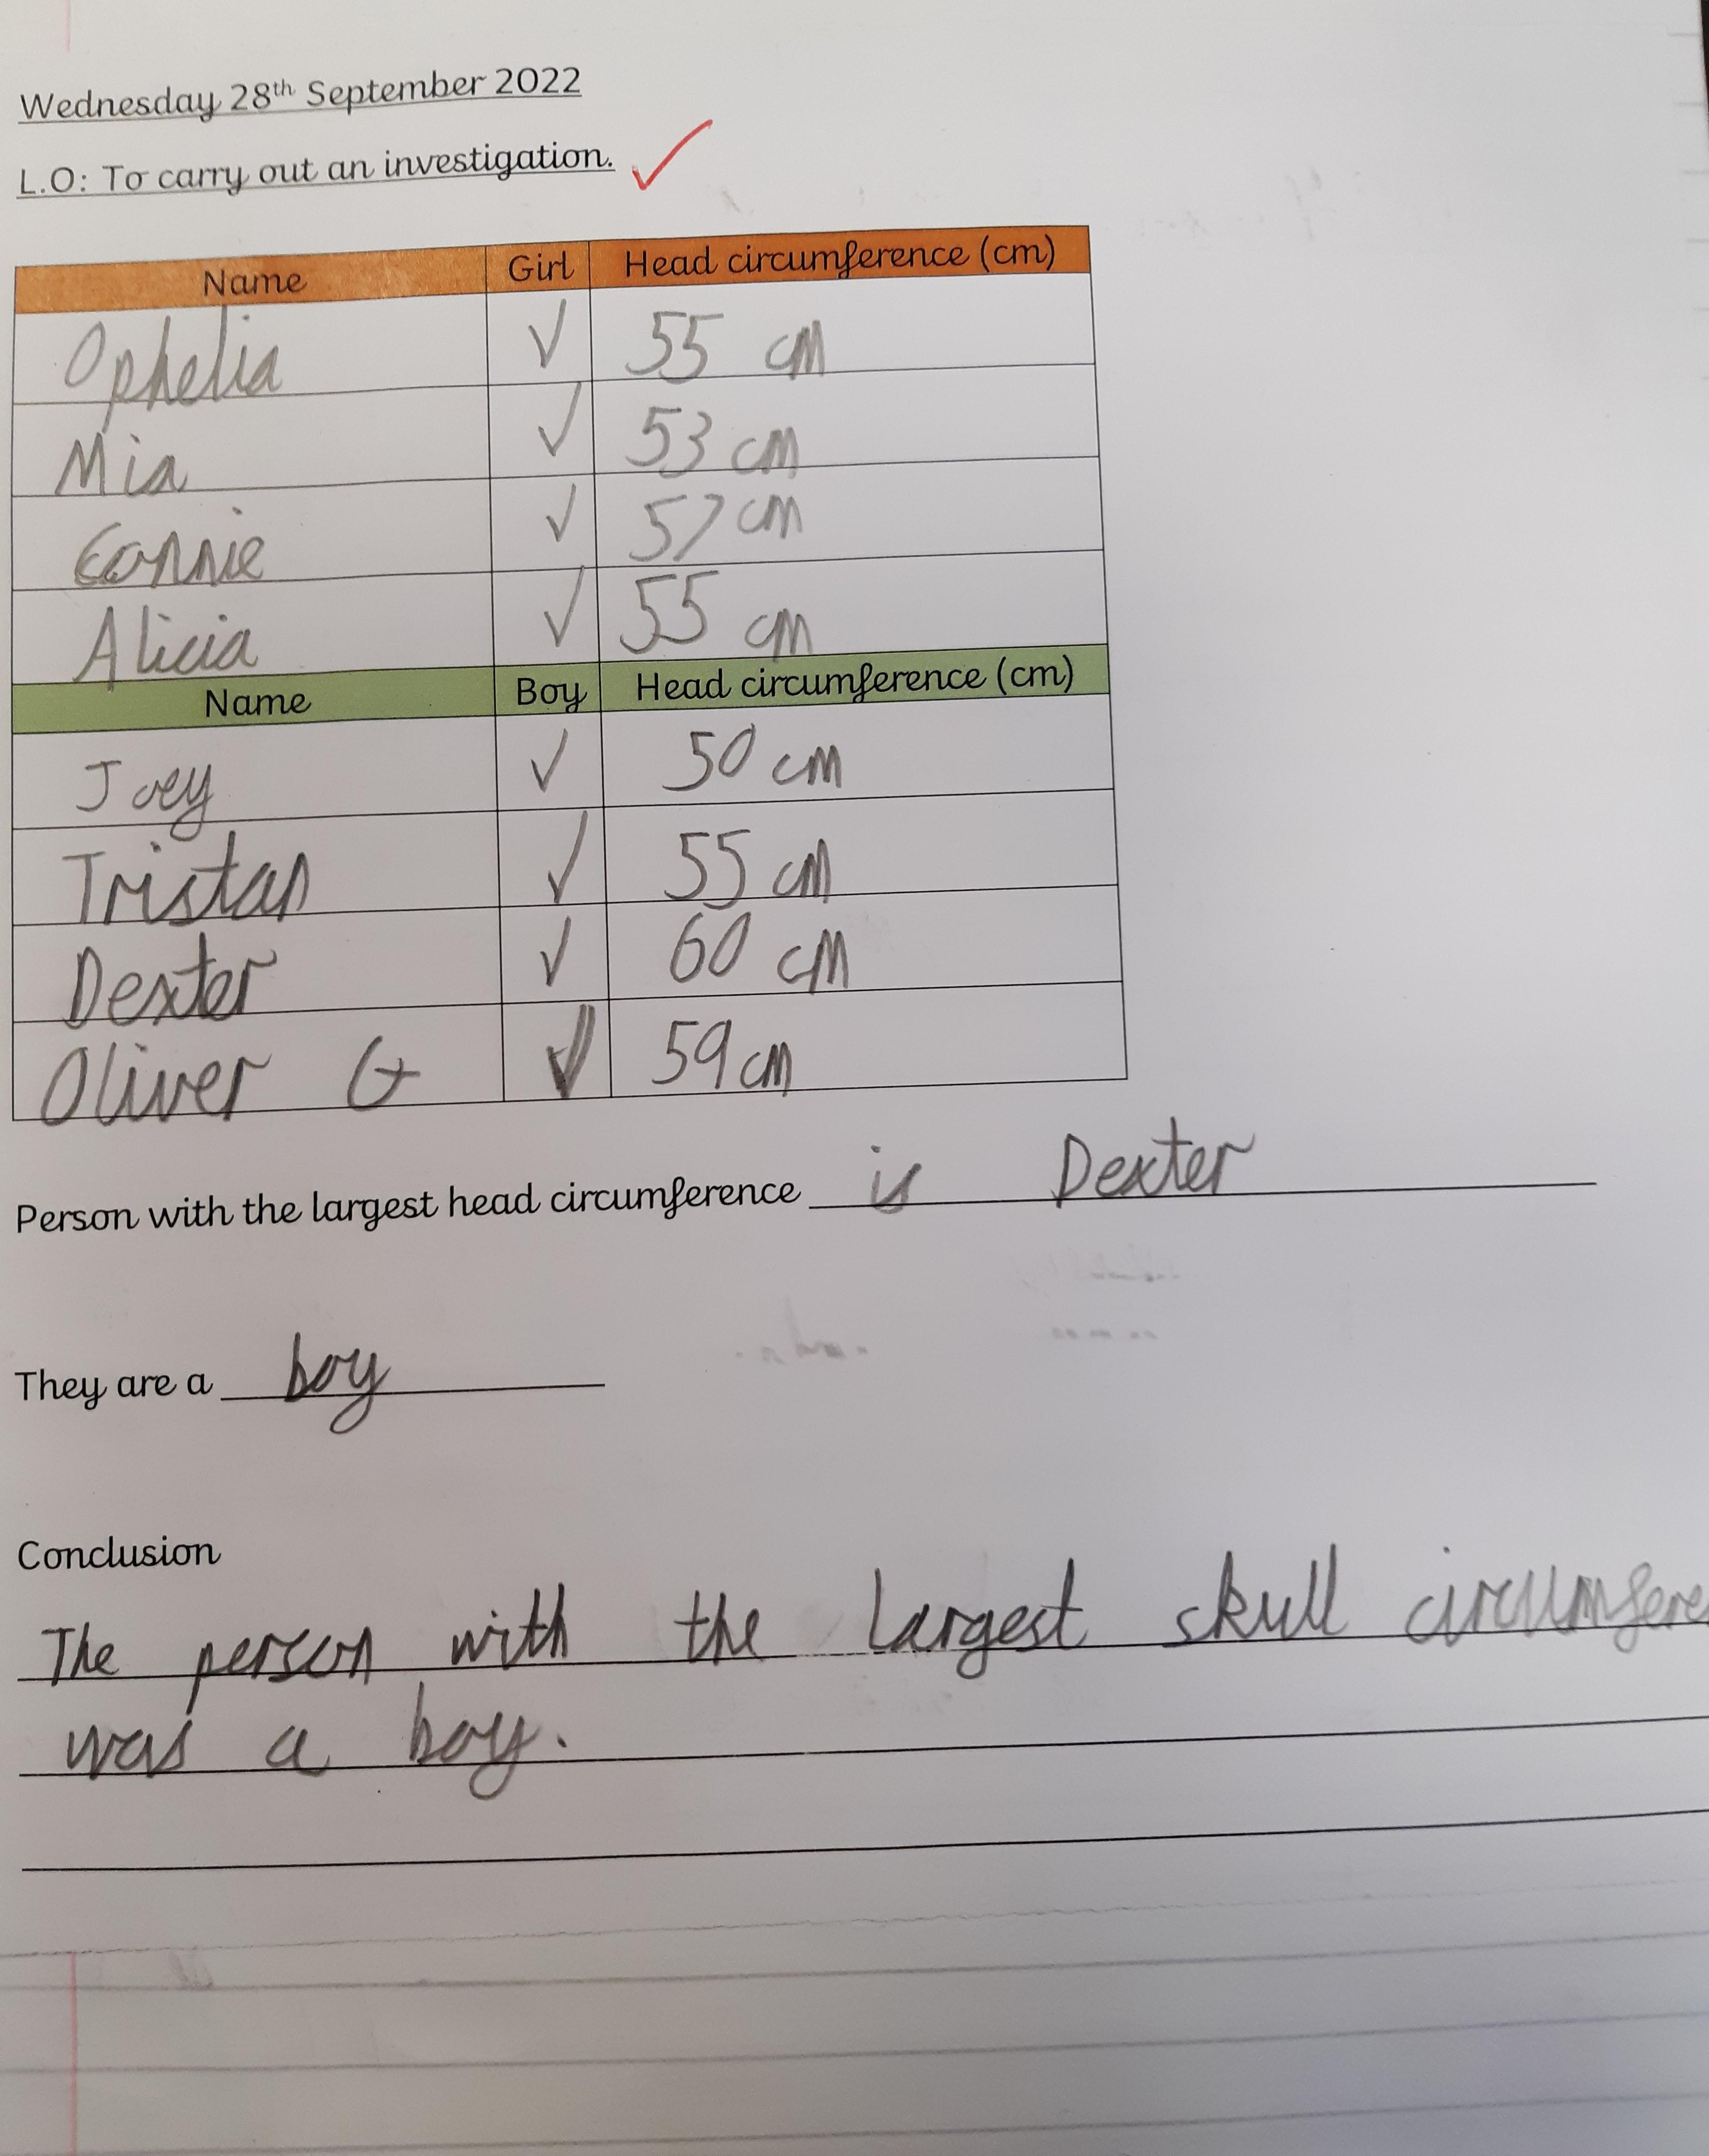 Wednesday 28th September 2022
L.O: To carry out an investigation.
Name Girl Head circumference (cm)
Ophelia ✓ 55 cm
Mia ✓ 53 cm
Connie ✓ 57 cm
Alicia ✓ 55 cm
Name Boy Head circumference (cm)
Joey ✓ 50 cm
Tristan ✓ 55 cm
Dexter ✓ 60 cm
Oliver G ✓ 59 cm
Person with the largest head circumference is Dexter
They are a boy
Conclusion
The person with the largest skull circumfere
was a boy.